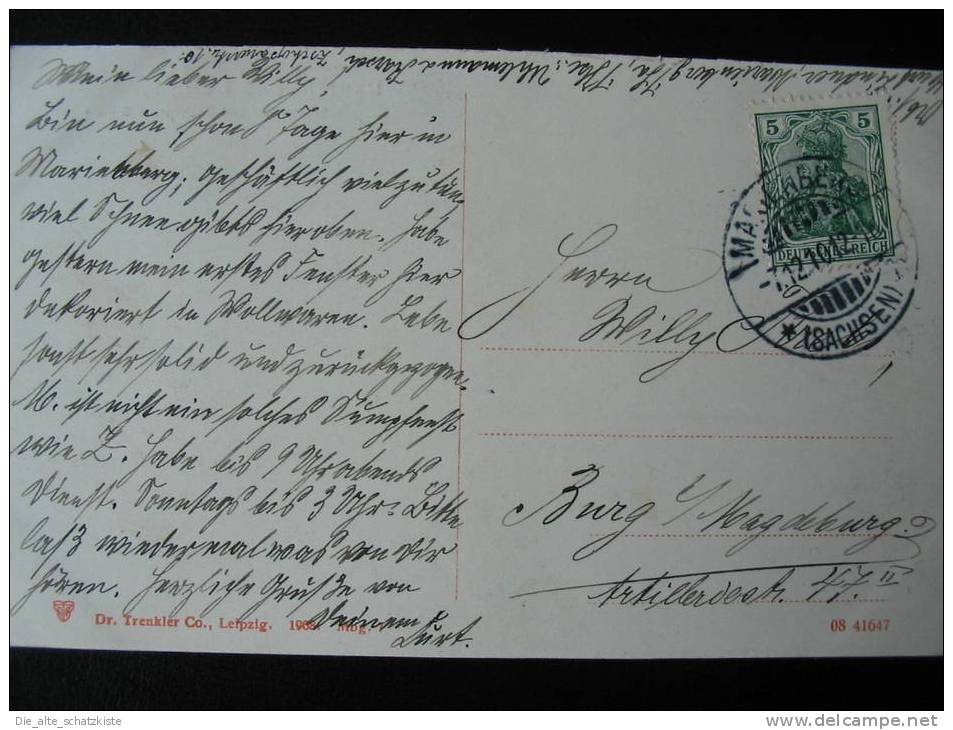 Mein lieber Willy!
Bin nun schon 8 Tage hier in
Marienberg, geschäftlich viel zu tun,
viel Schnee gibts hier oben. Habe
gestern mein erstes Fenster hier
dekoriert in Wollwaren. Lebe
sonst sehr solid und zurückgezogen.
M. ist nicht ein solches Sumpfnest
wie Z. Habe bis 9 Uhr abends
Dienst. Sonntags bis 3 Uhr. Bitte
laß wieder mal was von Dir
hören. Herzliche Grüße von
Deinem
Kurt.
Marienberg i/Sa,
5 5
DEUTSCHES REICH
MARIENBERG
7.12.10.12
* (SACHSEN)
Herrn
Willy
Burg b/Magdeburg.
Artilleriestr. 47. II
Dr. Trenkler Co., Leipzig. 1908. Mbg.
08 41647
Die_alte_schatzkiste
www.delcampe.net